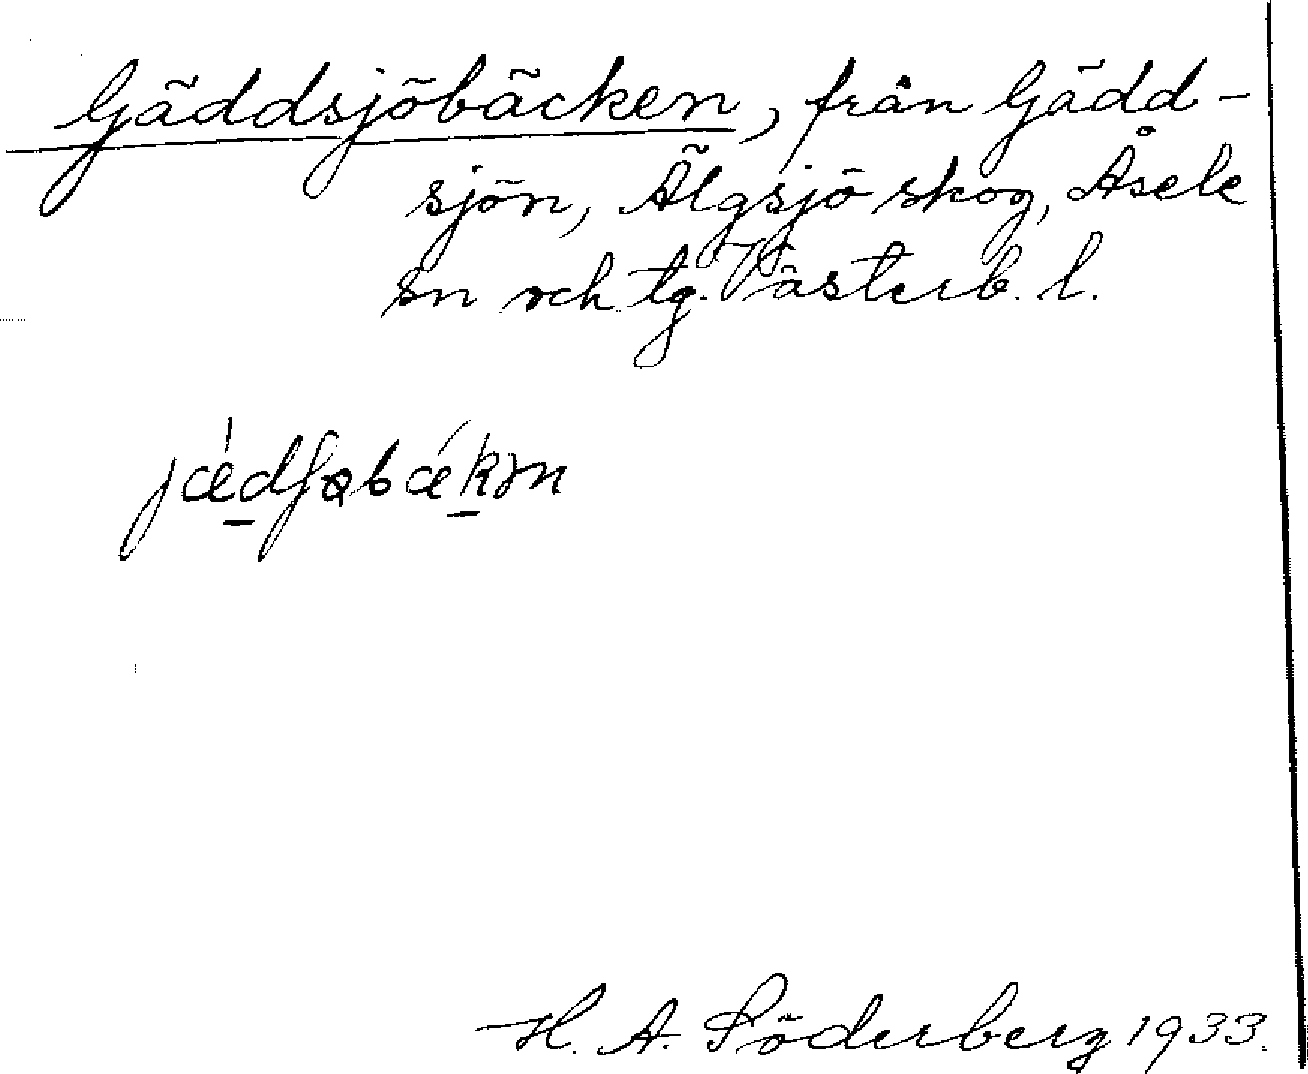 Gäddsjöbäcken, från Gädd-
sjön, Älgsjö skog, Åsele
sn och tg. Västerb. l.
jǽdʃɵbǽkən
H. A. Söderberg 1933.